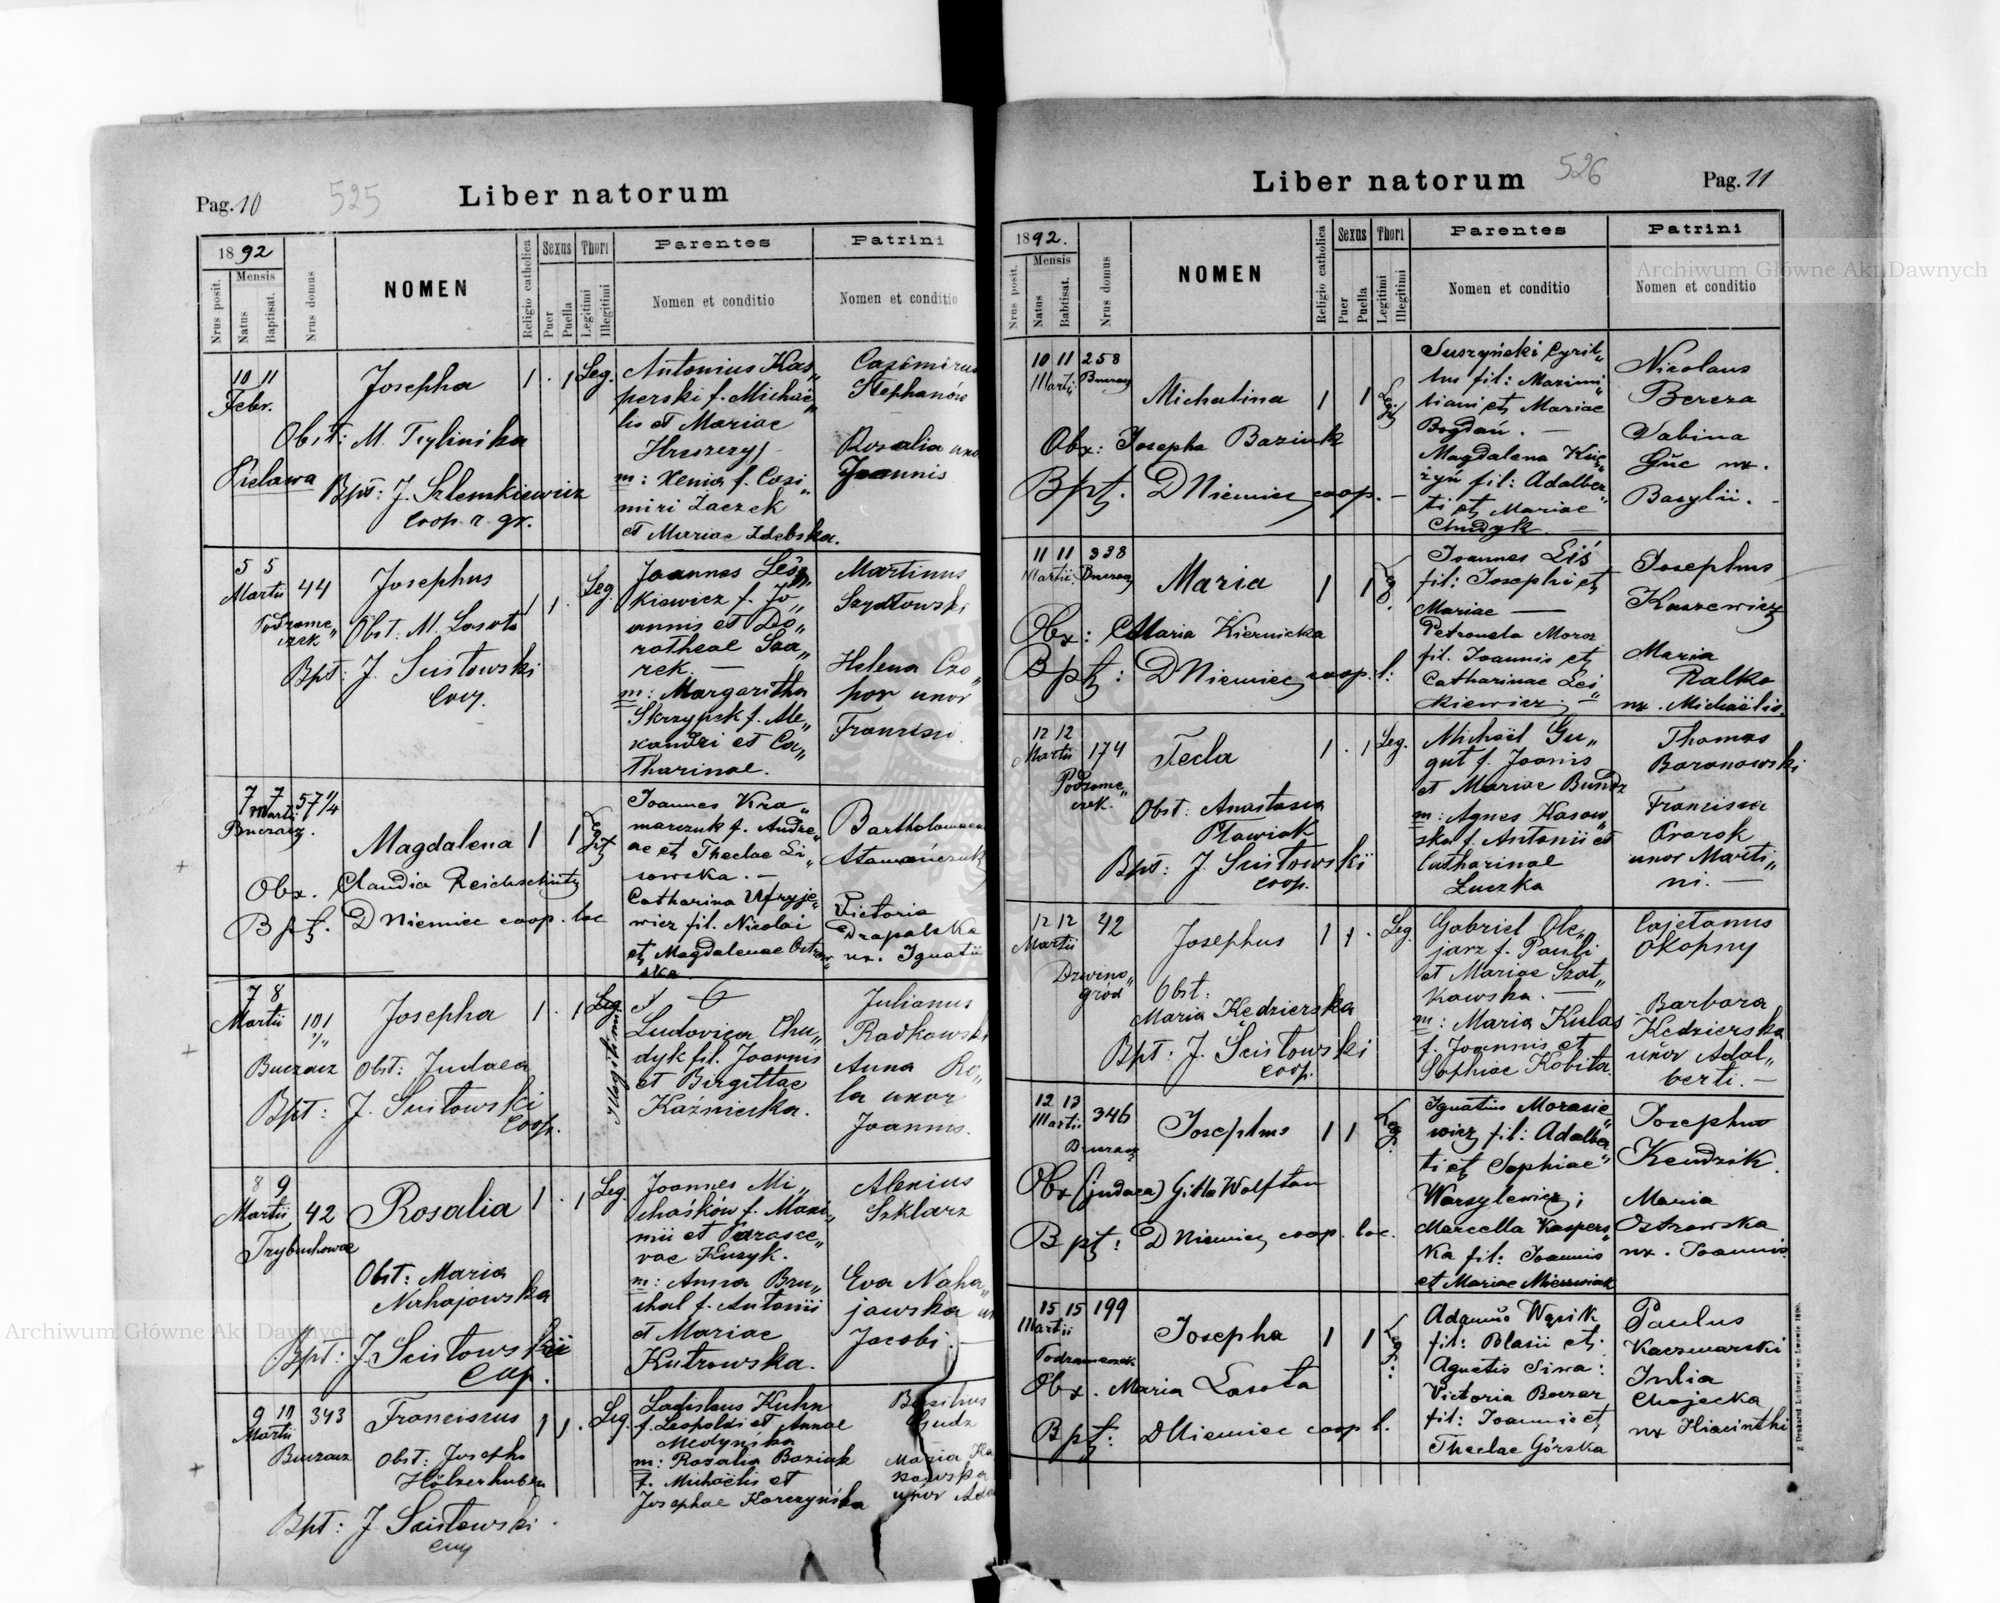 Pag. 10
525
Liber natorum
1892
Mensis
Nrus posit.
Natus
Baptisat.
Nrus domus
NOMEN
Religio catholica
Sexus
Puer
Puella
Thori
Legitimi
Illegitimi
Parentes
Nomen et conditio
Patrini
Nomen et conditio
10 11
Febr.
Josepha
1 . 1 Leg.
Obst: M. Trylinska
Bpt: J. Szlemkiewicz
coop. r. gr.
Antonius Kas„
perski f. Michaë„
lis et Mariae
m: Xenia f. Casi„
miri Zaczek
et Mariae Zdebska.
Casimirus
Stephanów
Rosalia uxo
Joannis
5 5
Martii 44
Podzame„
czek
Josephus
1 1 . Leg.
Obst: M. Lasota
Bpt: J. Scisłowski
Coop.
Joannes Leś„
kiewicz f. Jo„
annis et Do„
rotheae Sza„
rek. —
m: Margaritha
Skrzypek f. Ale„
xandri et Ca„
tharinae.
Martinus
Szydłowski
Helena Czo„
por uxor
Francisci
7 7 57 1/4
Martii
Buczacz.
Magdalena
1 1 Legit
Obx. Claudia Reichschütz
Bpt. D Niemiec coop. loc
Joannes Kra„
marczuk f. Andre„
ae et Theclae Li„
sowska. —
Catharina Ufryje„
wicz fil. Nicolai
et Magdalenae Ostrow„
ska
Bartholomaeus
Stamańczuk
Victoria
Drapalska
ux. Ignatii
7 8
Martii 101
Buczacz
Josepha
1 . 1 Leg.
Illegitimi
Obst: Judaea
Bpt: J. Scisłowski
Coop.
Ludovica Chu„
dyk fil. Joannis
et Birgittae
Kaźnicka.
Julianus
Radkowski
Anna Ro„
la uxor
Joannis.
8 9
Martii 42
Trybuchowce
Rosalia
1 . 1 Leg.
Obst: Maria
Nahajowska
Bpt: J. Scisłowski
Coop.
Joannes Mi„
chaśków f. Maxi„
mii et Parasce„
vae Kuzyk.
m: Anna Bru„
chal f. Antonii
et Mariae
Kutrowska.
Alexius
Szklarz
Eva Naha„
jowska ux
Jacobi. —
9 10 343
Martii
Buczacz
Franciscus
1 1 . Leg.
Obst: Josepha
Hölzerhuber
Bpt: J. Scisłowski
coop
Ladislaus Kuhn
f. Leopoldi et Annae
Medyńska
m: Rosalia Baziuk
f. Michaëlis et
Josephae Korczyńska
Basilius
Gudz
Maria Ka
uxor Ada
Liber natorum
526
Pag. 11
1892.
Mensis
Nrus posit.
Natus
Babtisat.
Nrus domus
NOMEN
Religio catholica
Sexus
Puer
Puella
Thori
Legitimi
Illegitimi
Parentes
Nomen et conditio
Patrini
Nomen et conditio
10 11 258
Martii Buczacz
Michalina
1 1 Legit
Obx: Josepha Baziuk
Bpt. D Niemiec coop. —
Suszyński Cyril„
lus fil: Maximi„
liani et Mariae
Bogdań. —
Magdalena Księ„
żyń fil: Adalber„
ti et Mariae
Chudyk —
Nicolaus
Bereza
Sabina
Guc ux.
Basylii. -
11 11 338
Martii Buczacz
Maria
1 1 Leg.
Obx: Maria Kiernicka
Bpt: D Niemiec coop. l:
Joannes Liś
fil: Josephi et
Mariae —
Petronela Moroz
fil. Joannis et
Catharinae Leś„
kiewicz —
Josephus
Kuszewicz
Maria
Ralko
ux. Michaëlis.
12 12
Martii 174
Podzame„
czek.
Tecla
1 . 1 Leg.
Obst: Anastasia
Pławiak
Bpt: J. Scisłowski
coop.
Michaël Gu„
gut f. Joannis
et Mariae Bundz
m: Agnes Kasow„
ska f. Antonii et
Catharinae
Łuczka
Thomas
Baranowski
Francisca
Prorok
uxor Marti„
ni. —
12 12 42
Martii
Dzwino„
gród
Josephus
1 1 . Leg.
Obst:
Maria Kędzierska
Bpt: J. Scisłowski
coop.
Gabriel Ole„
jarz f. Pauli
et Mariae Szat„
kowska. —
m: Maria Kulas
f. Joannis et
Sophiae Kobita.
Cajetanus
Okopny
Barbara
Kędzierska
uxor Adal„
berti. —
12 13 346
Martii
Buczacz
Josephus
1 1 Leg:
Obx (judaea) Gitla Wolftan
Bpt: D Niemiec coop. loc.
Ignatius Morasie„
wicz fil: Adalber„
ti et Sophiae
Wasylewicz;
Marcella Kaspers„
ka fil: Joannis
et Mariae Mierzwiak
Josephus
Kendzik.
Maria
Ostrowska
ux. Joannis
15 15 199
Martii
Podzameczek
Josepha
1 1 Leg:
Obx. Maria Lasota
Bpt: D Niemiec coop l.
Adamus Wąsik
fil: Blasii et
Agnetis Siwa:
Victoria Boczar
fil: Joannis et
Theclae Górska
Paulus
Kaczmarski
Julia
Chojecka
ux Hiacinthi
Archiwum Główne Akt Dawnych
Archiwum Główne Akt Dawnych